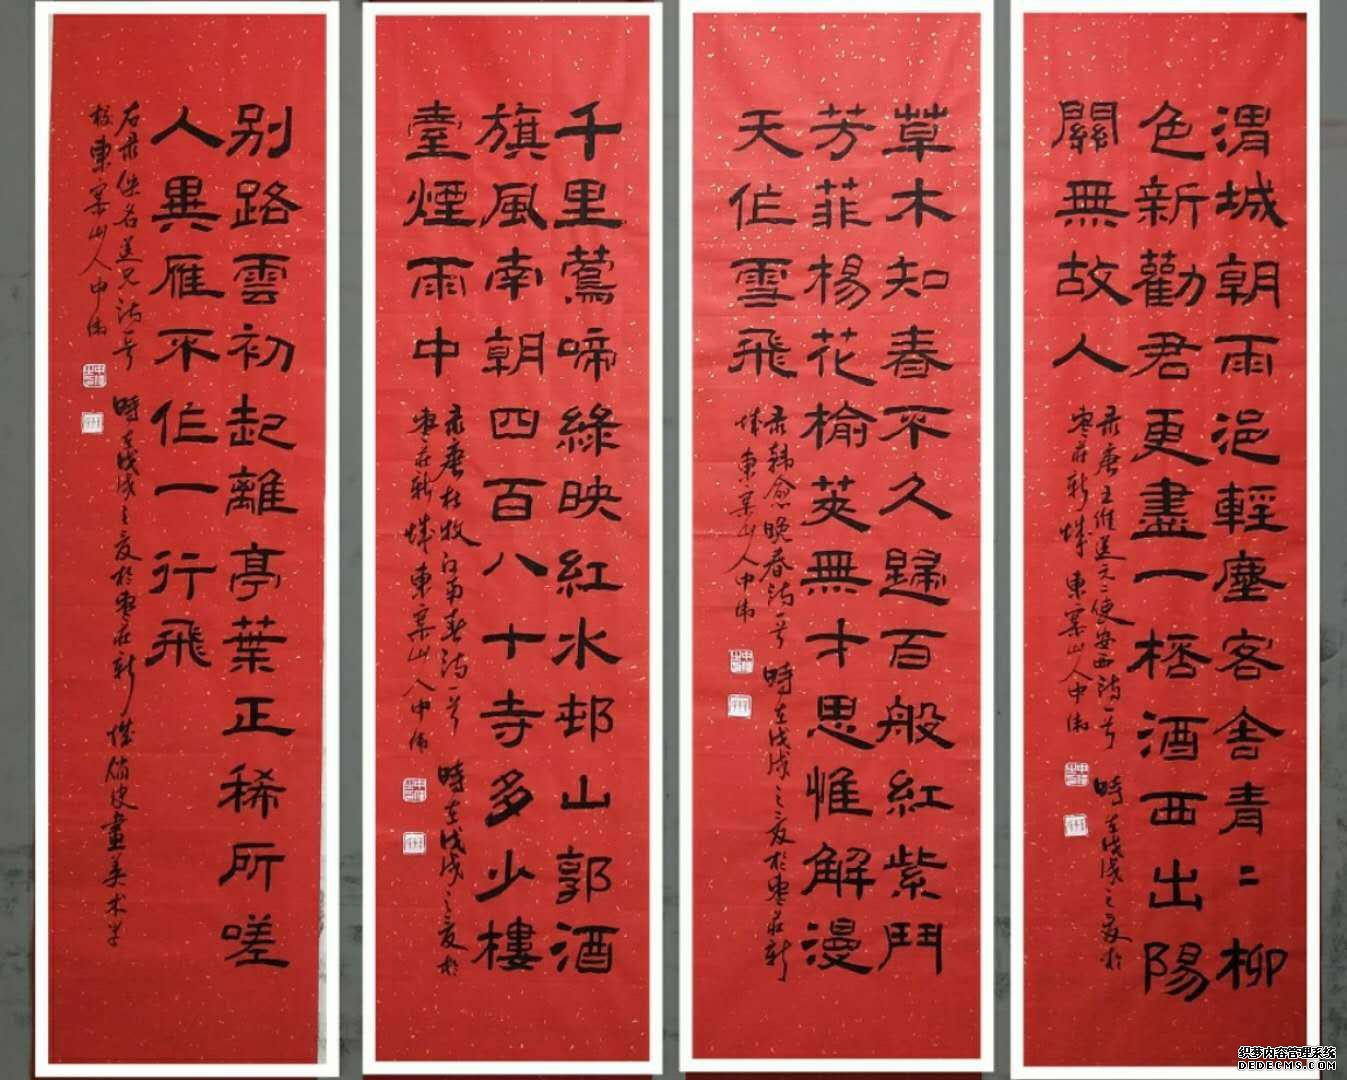 渭城朝雨浥輕塵客舍青〻柳
色新勸君更盡一桮酒西出陽
關無故人
录唐王維送元二使安西诗一首 時在戊戌之夏於
枣庄新城 東寨山人中偉
草木知春不久歸百般紅紫鬥
芳菲楊花榆莢無才思惟解漫
天作雪飛
录韩愈晚春诗一首 時在戊戌之夏於枣莊新
城東寨山人中偉
千里鶯啼綠映紅水邨山郭酒
旗風南朝四百八十寺多少樓
臺煙雨中
录唐杜牧江南春诗一首 時在戊戌之夏於
枣庄新城東寨山人中偉
別路雲初起離亭葉正稀所嗟
人異雁不作一行飛
右录佚名送兄诗一首 時在戊戌之夏於枣庄新城畫美术学
校東寨山人中偉
织梦内容管理系统
DEDECMS.COM